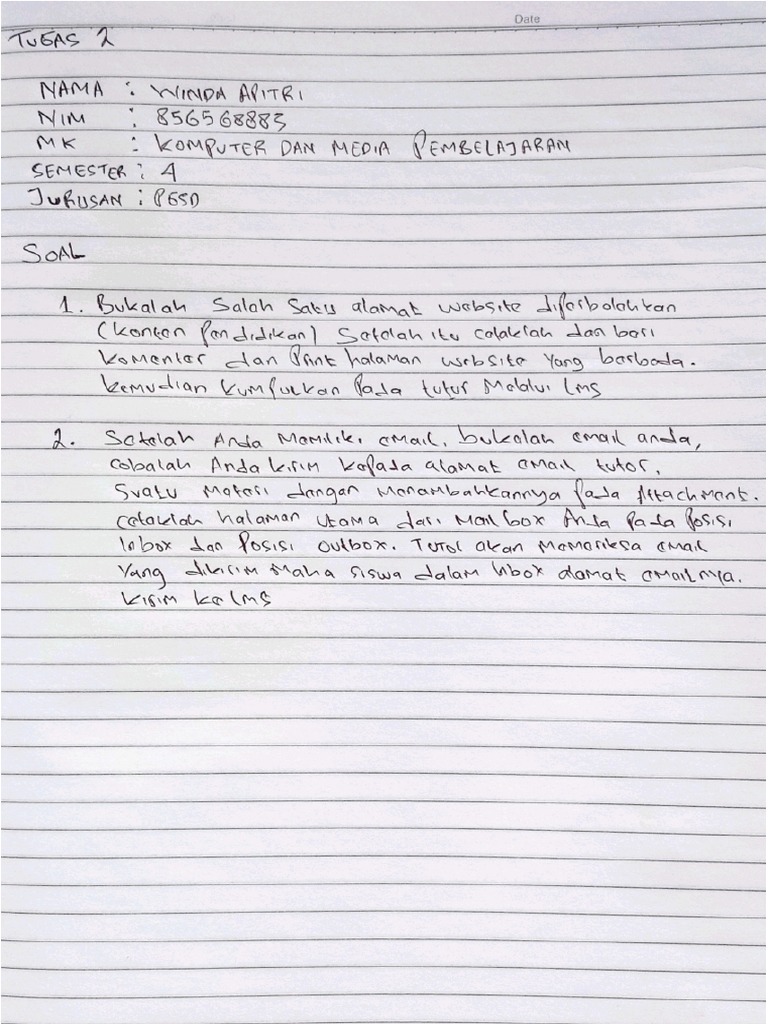 Date
TUGAS 2
NAMA : WINDA APITRI
NIM : 856568883
MK : KOMPUTER DAN MEDIA PEMBELAJARAN
SEMESTER : 4
JURUSAN : PGSD
SOAL
1. Bukalah Salah Satu alamat website diperbolehkan
(konten Pendidikan) Setelah itu cetaklah dan beri
komentar dan Print halaman website yang berbeda.
kemudian kumpulkan Pada tutor Melalui lms
2. Setelah Anda Memiliki email, bukalah email anda,
cobalah Anda kirim kepada alamat email tutor,
Suatu Materi dengan Menambahkannya Pada Attachment.
cetaklah halaman utama dari Mail box Anda Pada Posisi
Inbox dan Posisi outbox. Tutor akan Memeriksa email
Yang dikirim Maha siswa dalam Inbox alamat emailnya.
kirim ke lms